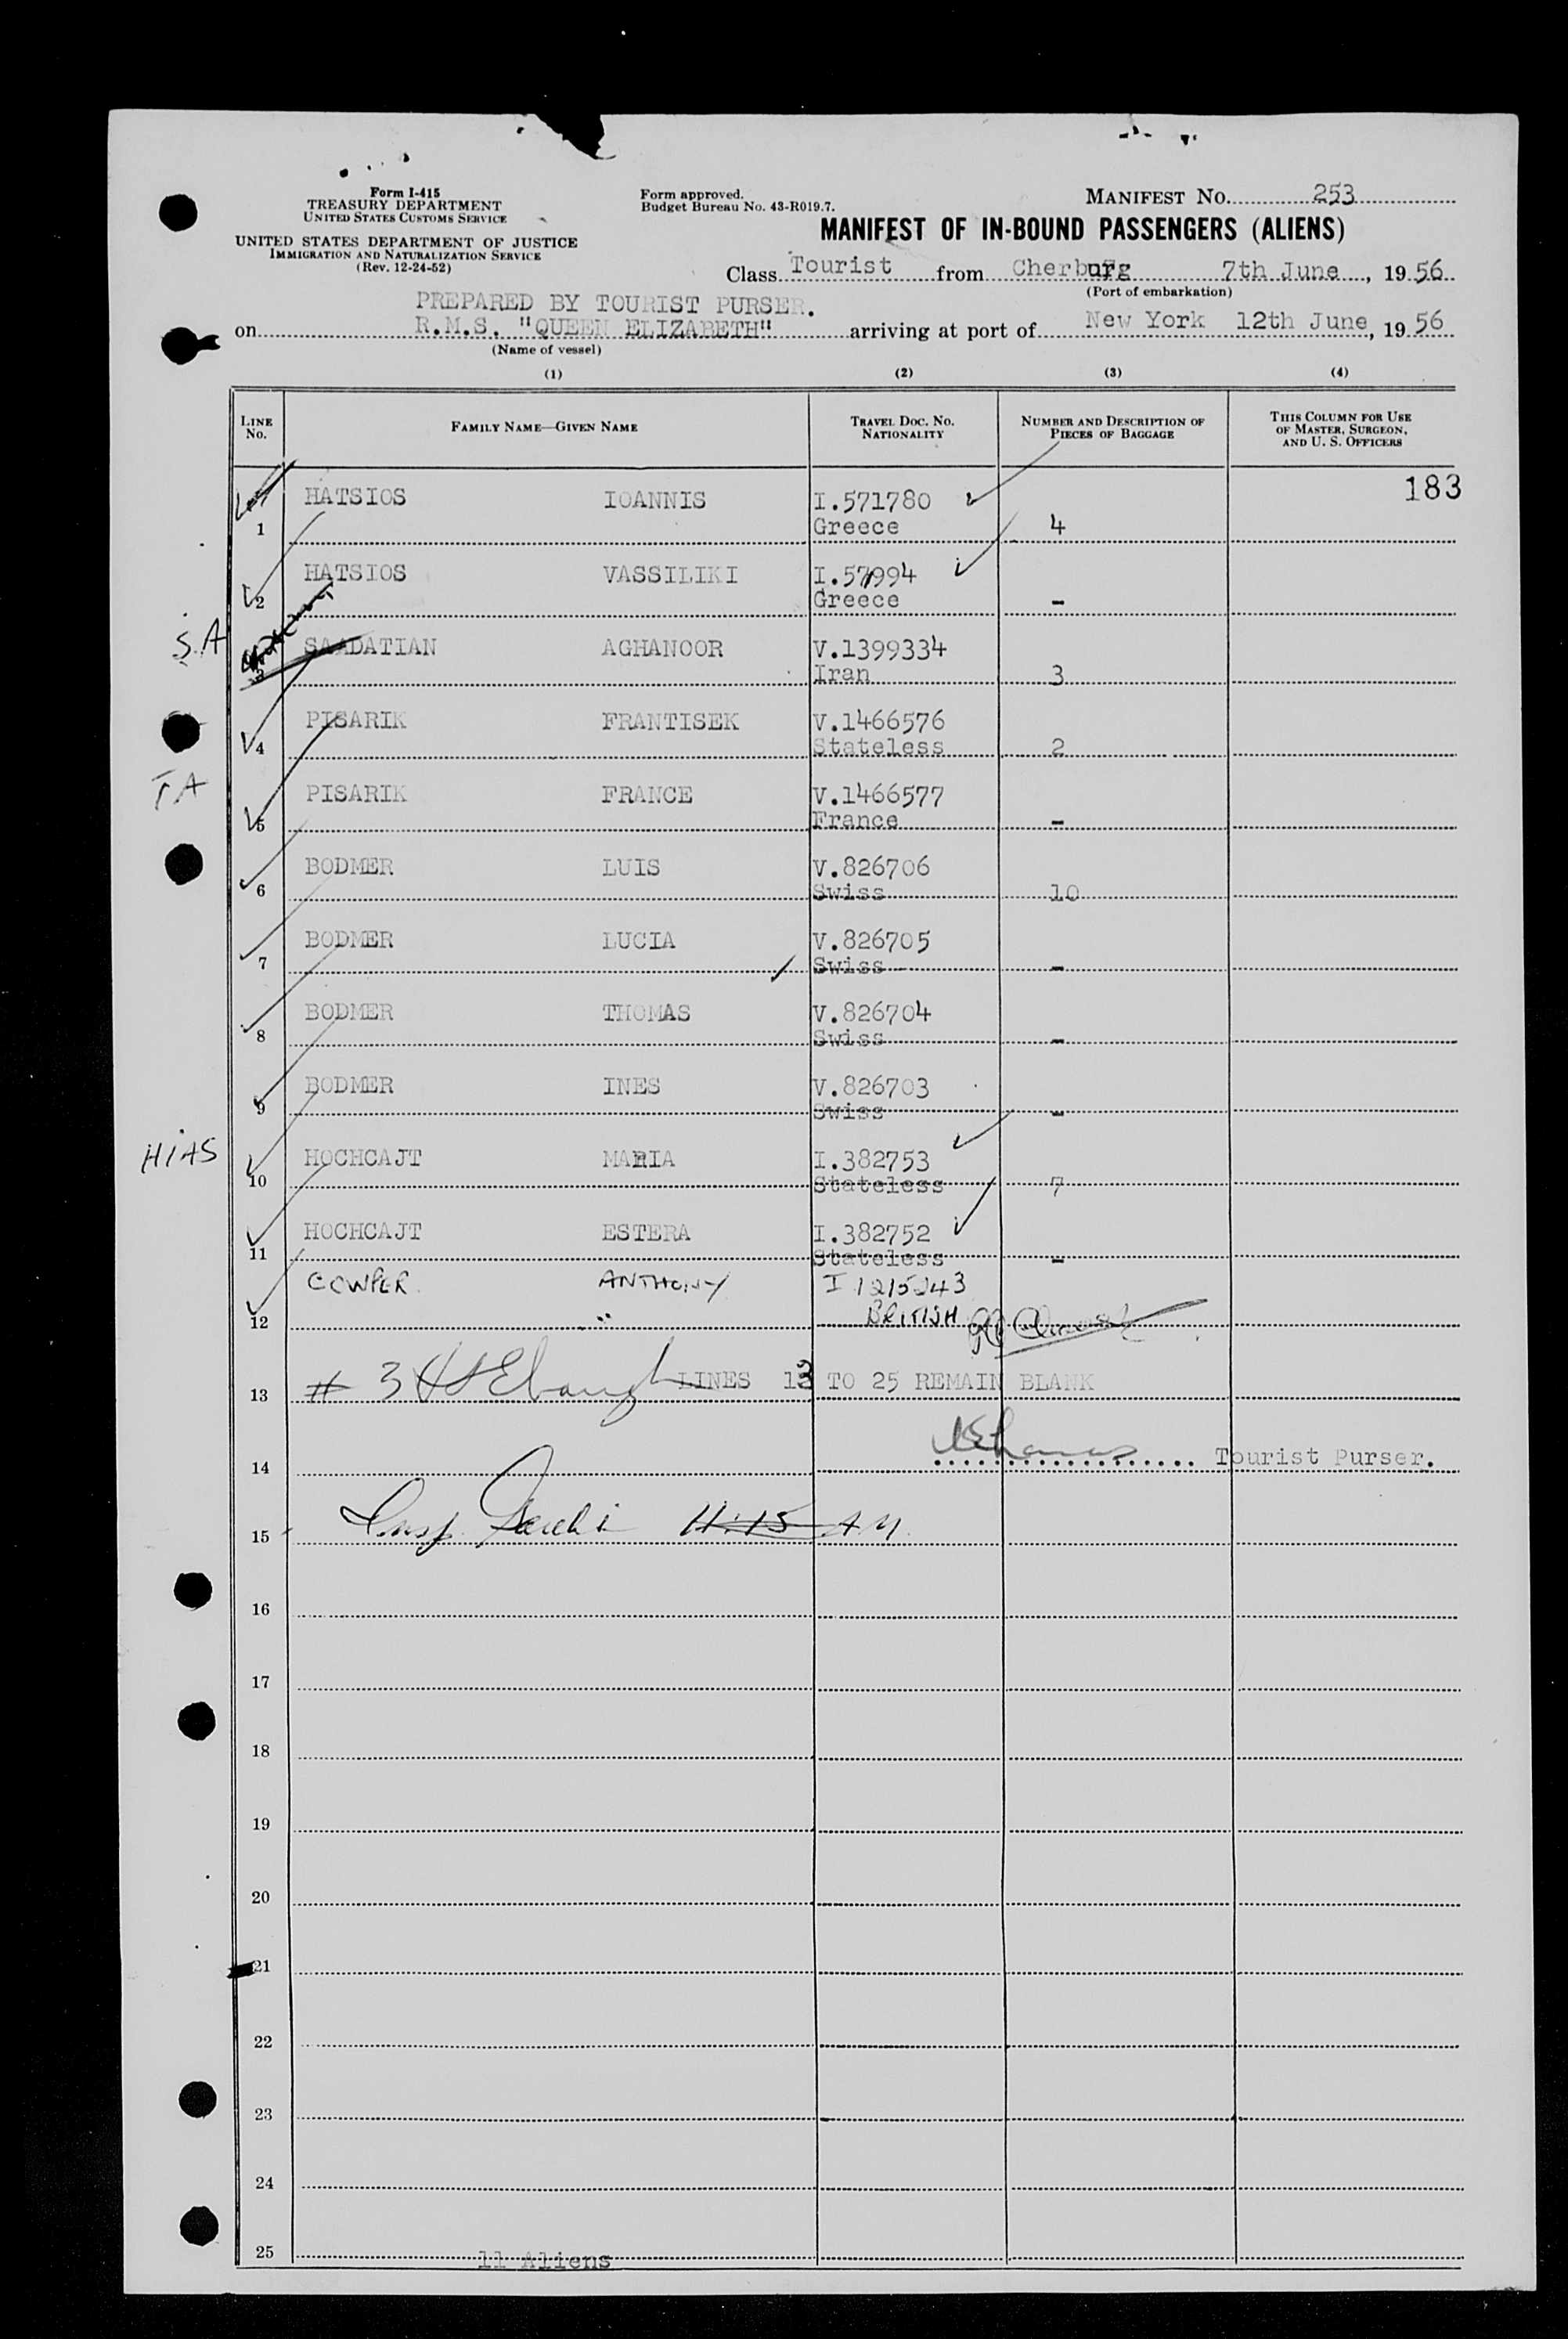 Form I-415
TREASURY DEPARTMENT
UNITED STATES CUSTOMS SERVICE
UNITED STATES DEPARTMENT OF JUSTICE
IMMIGRATION AND NATURALIZATION SERVICE
(Rev. 12-24-52)
Form approved.
Budget Bureau No. 43-R019.7.
MANIFEST NO. 253
MANIFEST OF IN-BOUND PASSENGERS (ALIENS)
Class Tourist from Cherburg 7th June, 1956
(Port of embarkation)
PREPARED BY TOURIST PURSER.
on R.M.S. "QUEEN ELIZABETH" arriving at port of New York 12th June, 1956
(Name of vessel)
(1) (2) (3) (4)
LINE No. FAMILY NAME—GIVEN NAME TRAVEL DOC. NO. NATIONALITY NUMBER AND DESCRIPTION OF PIECES OF BAGGAGE THIS COLUMN FOR USE OF MASTER, SURGEON, AND U. S. OFFICERS
183
1 HATSIOS IOANNIS I.571780 Greece 4
2 HATSIOS VASSILIKI I.571994 Greece -
S.A 3 SAADATIAN AGHANOOR V.1399334 Iran 3
4 PISARIK FRANTISEK V.1466576 Stateless 2
TA
5 PISARIK FRANCE V.1466577 France -
6 BODMER LUIS V.826706 Swiss 10
7 BODMER LUCIA V.826705 Swiss -
8 BODMER THOMAS V.826704 Swiss -
9 BODMER INES V.826703 Swiss -
HIAS 10 HOCHCAJT MARIA I.382753 Stateless 7
11 HOCHCAJT ESTERA I.382752 Stateless -
12 COWPER ANTHONY BRITISH
13 # 3 LINES 13 TO 25 REMAIN BLANK
14 Tourist Purser.
15 Insp. 11:15 AM
16
17
18
19
20
21
22
23
24
25 11 Aliens